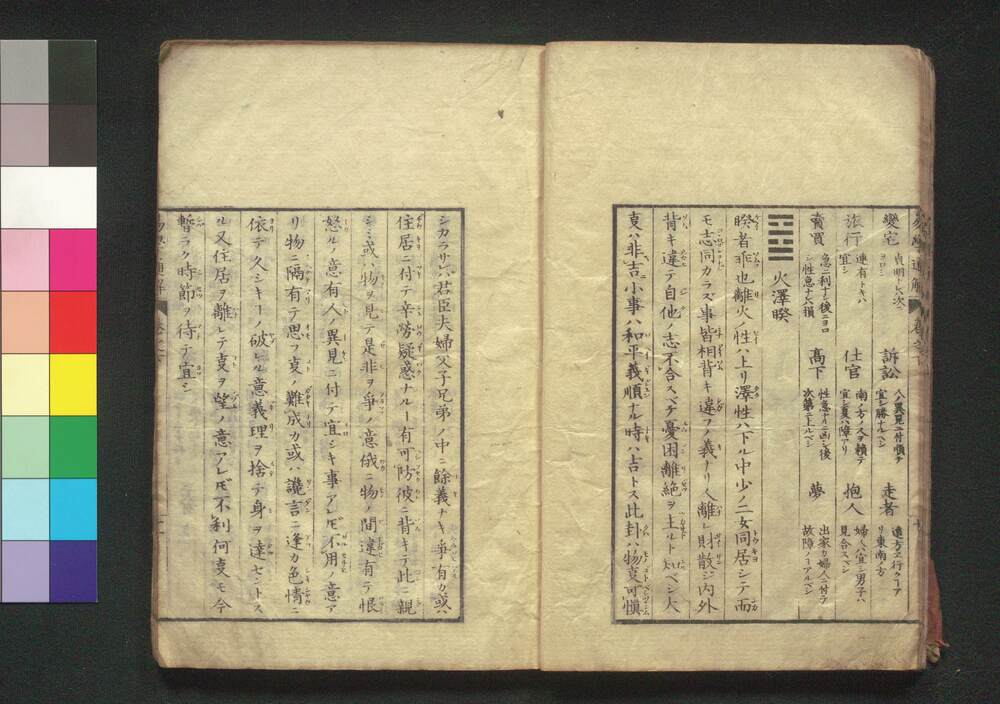 變宅 貞明ナレバ次ヘ
ヨロシ
訴訟 人ノ異見ニ付順テ
宜シ勝ナルベシ
走者 遠方ヘ行クーア
リ東南ノ方
旅行 連有トキハ
宜シ
仕官 南ノ方ノスヲ頼テ
宜シ夏ハ障アリ
抱人 婦人ハ宜シ男子ハ
見合スベシ
賣買 急ニ利ナシ後ニヨロ
シ性急ナレバ損
高下 性急ナルニ凶シ後
次第ニ上ルベシ
夢 出家カ婦人ニ付テ
故障ノーアルベシ
火澤睽
睽者乖也離火ノ性ハ上リ澤性ハ下ル中少ノ二女同居シテ而
モ志同カラズ事皆相背キ違フノ義ナリ人離レ財散ジ内外
背キ違テ自他ノ志不合スベテ憂困離絶ヲ主ルト知ベシ大
叓ハ非吉小事ハ和平義順ナル時ハ吉トス此卦ハ物叓可慎
シカラサレバ君臣夫婦父子兄弟ノ中ニ餘義ナキ爭有カ或ハ
住居ニ付テ辛勞疑惑ナルー有可防彼ニ背キテ此ニ親
シミ或ハ物ヲ見テ是非ヲ爭ノ意俄ニ物ノ間違有テ恨
怒ルノ意有人ノ異見ニ付テ宜シキ事アレ𪜈不用ノ意ア
リ物ニ隔有テ思フ叓ノ難成カ或ハ讒言ニ逢カ色情ニ
依テ久シキーノ破レル意義理ヲ捨テ身ヲ達セントス
ル又住居ヲ離レテ叓ヲ望ノ意アレ𪜈不利何叓モ今
暫ラク時節ヲ待テ宜シ